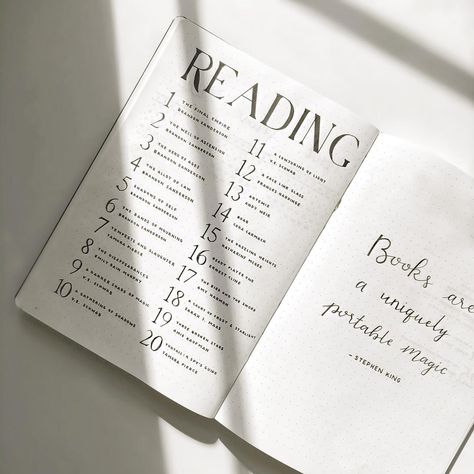 READING
1 THE FINAL EMPIRE
BRANDON SANDERSON
2 THE WELL OF ASCENSION
BRANDON SANDERSON
3 THE HERO OF AGES
BRANDON SANDERSON
4 THE ALLOY OF LAW
BRANDON SANDERSON
5 SHADOWS OF SELF
BRANDON SANDERSON
6 THE BANDS OF MOURNING
BRANDON SANDERSON
7 TEMPESTS AND SLAUGHTER
TAMORA PIERCE
8 THE DISAPPEARANCES
EMILY BAIN MURPHY
9 A DARKER SHADE OF MAGIC
V.E. SCHWAB
10 A GATHERING OF SHADOWS
V.E. SCHWAB
11 A CONJURING OF LIGHT
V.E. SCHWAB
12 A FACE LIKE GLASS
FRANCES HARDINGE
13 ARTEMIS
ANDY WEIR
14
15 THE DAZZLING HEIGHTS
KATHARINE MCGEE
16 READY PLAYER ONE
ERNEST CLINE
17
AMY HARMON
18 A COURT OF FROST & STARLIGHT
SARAH J. MAAS
19 THREE DARK
20
TAMORA PIERCE
Books are
a uniquely
portable magic
-STEPHEN KING